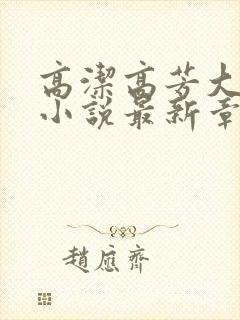 高潔高芳大
小說最新章
趙應齊